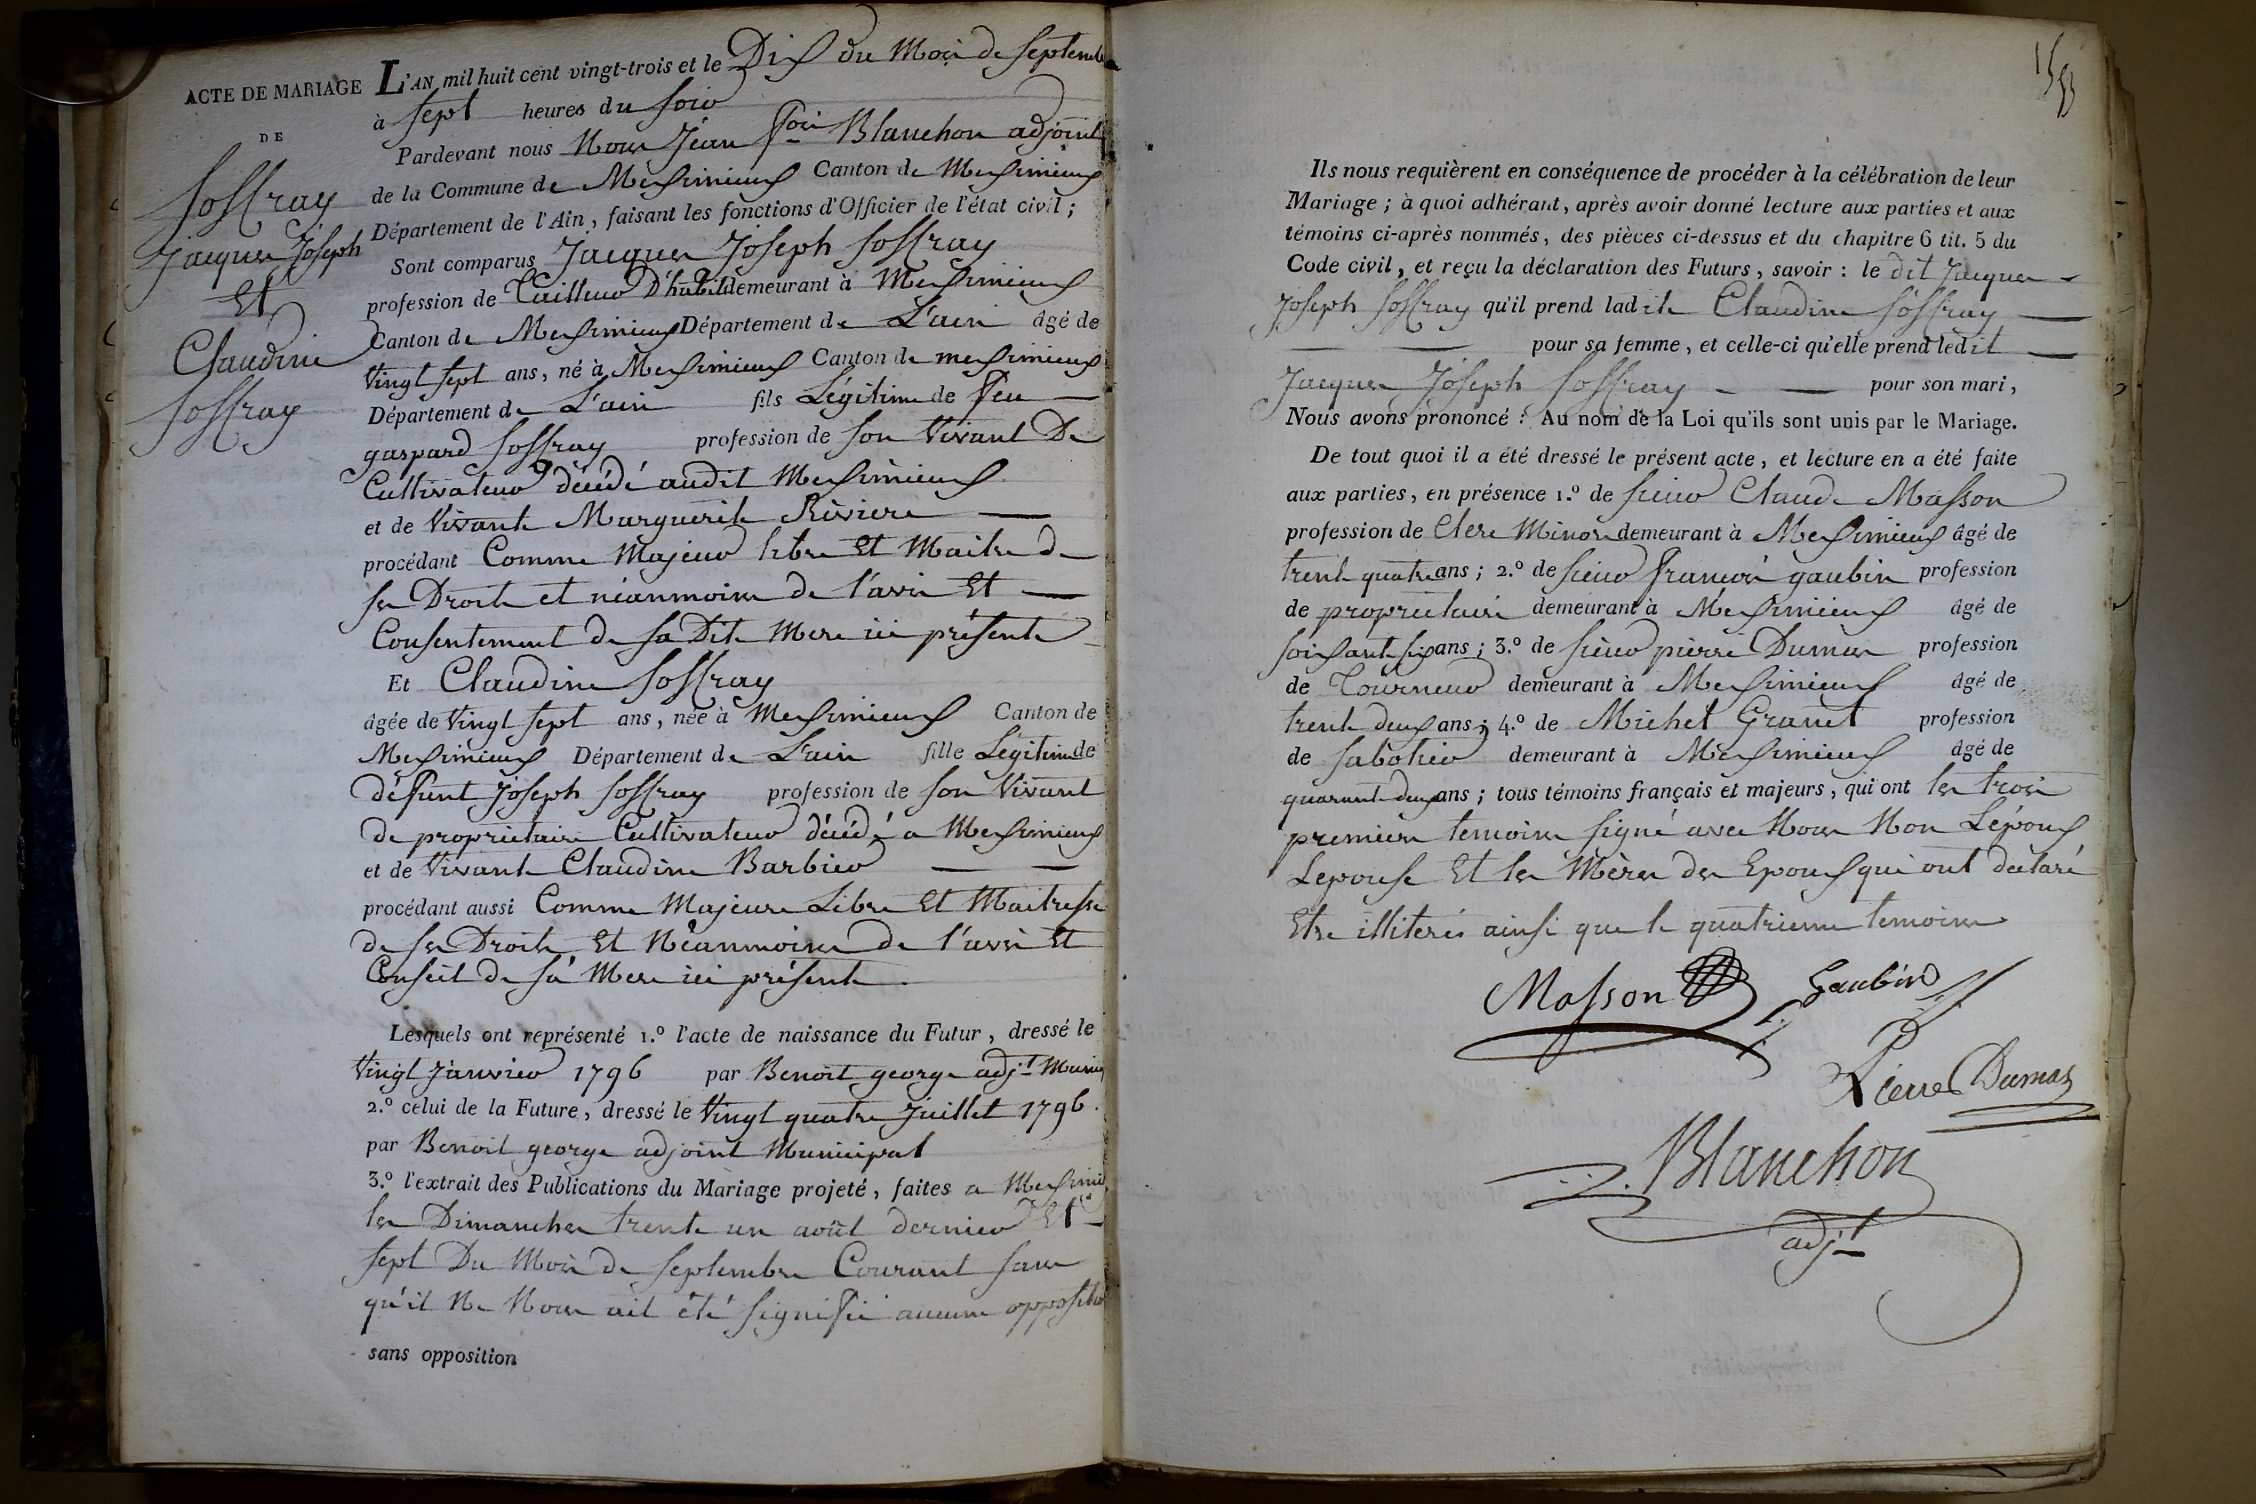 ACTE DE MARIAGE
DE
Joffray
Jacques Joseph
Et
Claudine
Joffray
L'AN mil huit cent vingt-trois et le Dix du Mois de Septembre
à Sept heures du Soir
Pardevant nous Nous Jean fois Blanchon adjoint
de la Commune de Meximieux Canton de Meximieux
Département de l'Ain, faisant les fonctions d'Officier de l'état civil;
Sont comparus Jacques Joseph Joffray
profession de Tailleur D'habit demeurant à Meximieux
Canton de Meximieux Département de L'ain âgé de
Vingt Sept ans, né à Meximieux Canton de meximieux
Département de L'ain fils Légitime de feu
gaspard Joffray profession de Son Vivant De
Cultivateur décédé audit Meximieux
et de Vivante Marguerite Riviere
procédant Comme Majeur libre Et Maitre de
ses Droits et néanmoins de l'avis Et
Consentement de Sa Dite Mere ici présente
Et Claudine Joffray
âgée de Vingt Sept ans, née à Meximieux Canton de
Meximieux Département de L'ain fille Légitime de
défunt Joseph Joffray profession de Son Vivant
de proprietaire Cultivateur décédé a Meximieux
et de Vivante Claudine Barbier
procédant aussi Comme Majeure Libre Et Maitresse
de ses Droits Et Néanmoins de l'avis Et
Conseil de Sa Mere ici présente
Lesquels ont représenté 1.º l'acte de naissance du Futur, dressé le
Vingt Janvier 1796 par Benoit george adj.t Munic
2.º celui de la Future, dressé le Vingt quatre Juillet 1796.
par Benoit george adjoint Municipal
3.º l'extrait des Publications du Mariage projeté, faites a Meximi
les Dimanches trente un août dernier Et
Sept Du Mois de Septembre Courant Sans
qu'il Ne Nous ait été Signifié aucune opposition
sans opposition
Ils nous requièrent en conséquence de procéder à la célébration de leur
Mariage; à quoi adhérant, après avoir donné lecture aux parties et aux
témoins ci-après nommés, des pièces ci-dessus et du chapitre 6 tit. 5 du
Code civil, et reçu la déclaration des Futurs, savoir: le dit Jacques
Joseph Joffray qu'il prend ladite Claudine Joffray
pour sa femme, et celle-ci qu'elle prend ledit
Jacques Joseph Joffray pour son mari,
Nous avons prononcé: Au nom de la Loi qu'ils sont unis par le Mariage.
De tout quoi il a été dressé le présent acte, et lecture en a été faite
aux parties, en présence 1.º de Sieur Claude Masson
profession de Clerc Minoré demeurant à Meximieux âgé de
trente quatre ans; 2.º de Sieur françois gaubin profession
de proprietaire demeurant à Meximieux âgé de
Soixante six ans; 3.º de Sieur pierre Dumas profession
de Tourneur demeurant à Meximieux âgé de
trente deux ans; 4.º de Michel Granet profession
de Sabotier demeurant à Meximieux âgé de
quarante deux ans; tous témoins français et majeurs, qui ont les trois
premiers temoins Signé avec Nous Non L'époux
Lepouse Et les Mères des Epoux qui ont déclaré
Etre illiterés ainsi que le quatrieme temoins
Masson
Gaubin
Pierre Dumas
Blanchon
adj.t